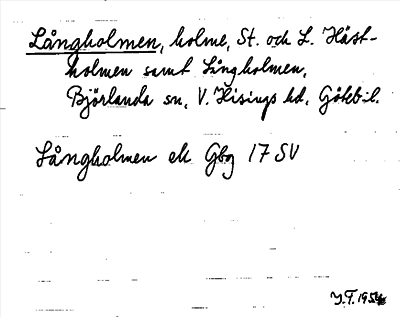 Långholmen, holme, St. och L. Häst-
holmen samt Långholmen,
Björlanda sn, V. Hisings hd, Götebl.
Långholmen ek Gbg 17 SV